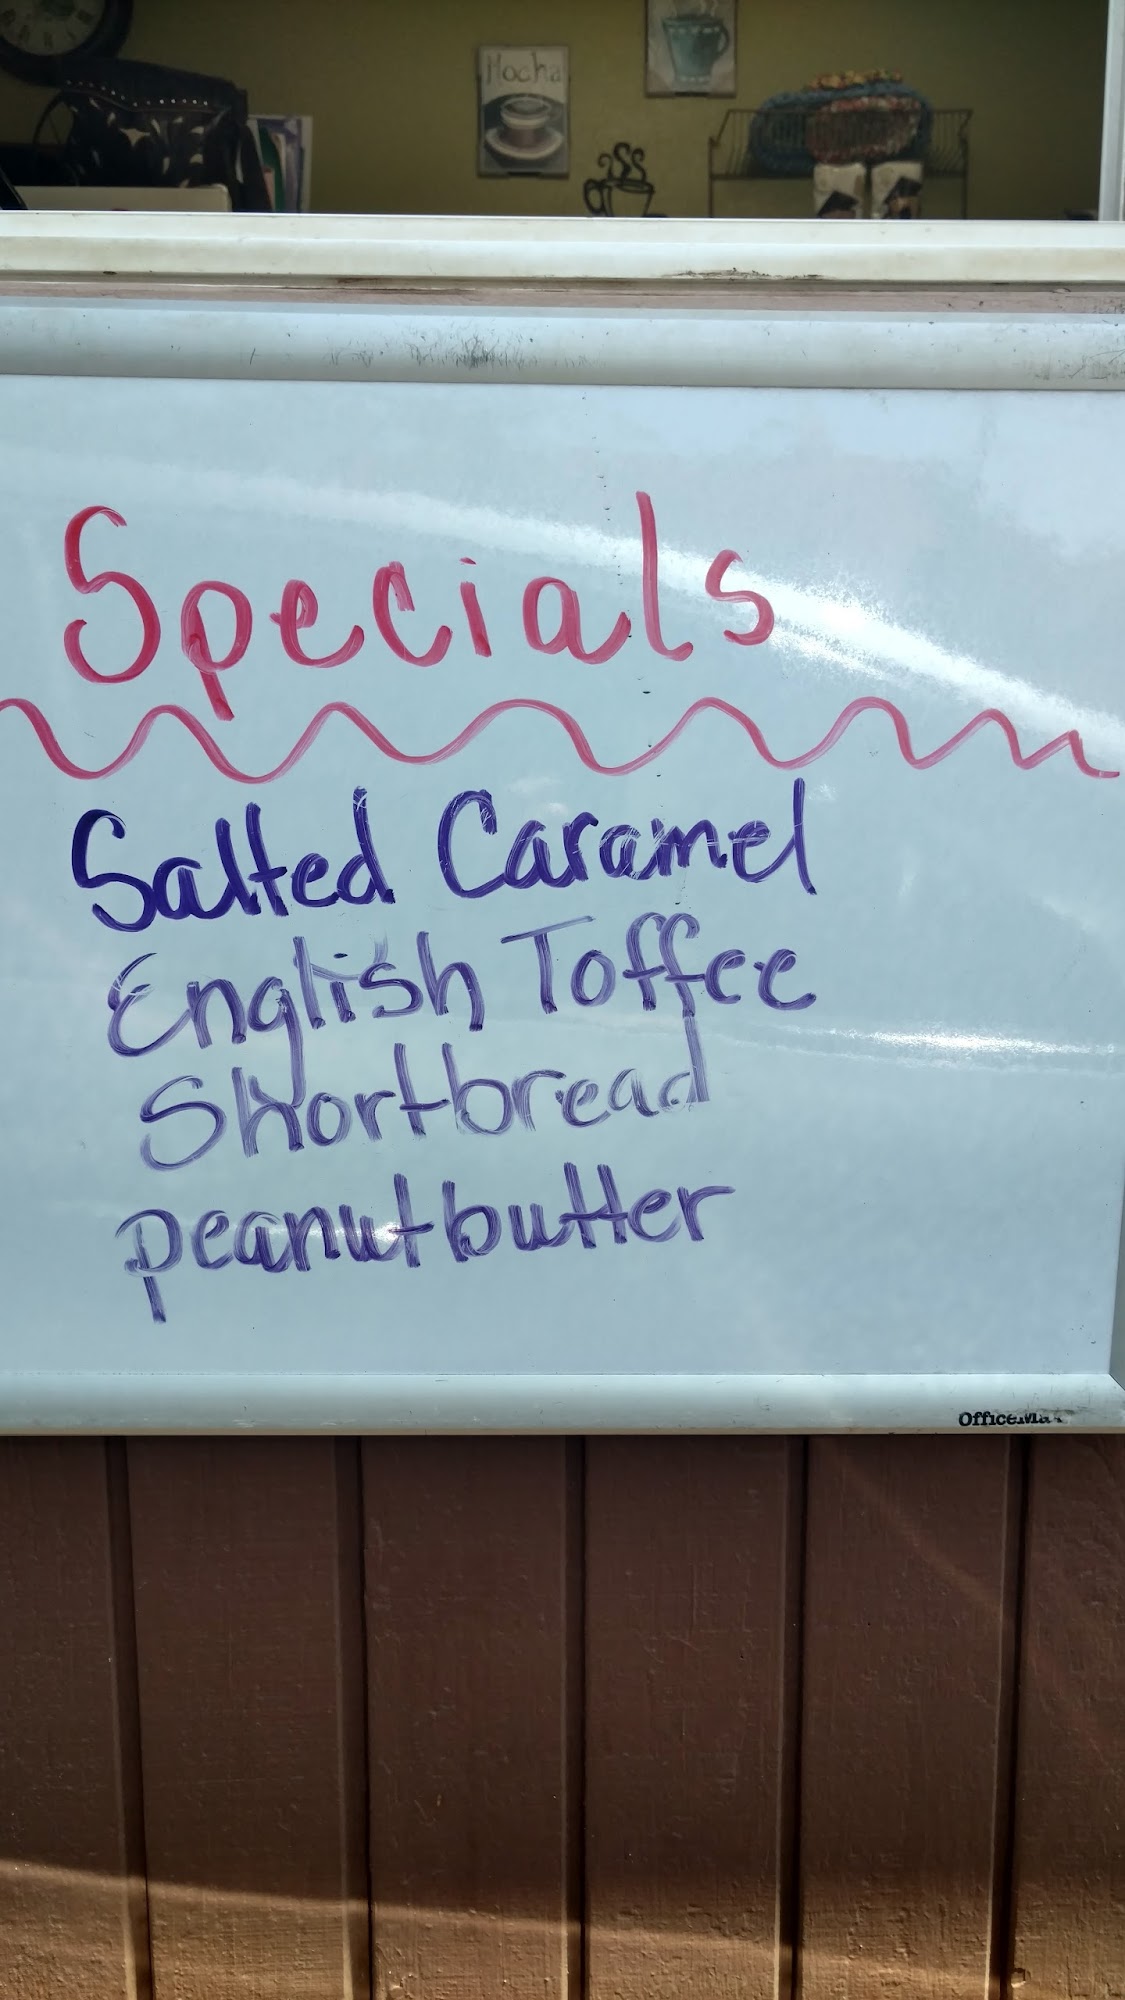 Mocha
Specials
Salted Caramel
English Toffee
Shortbread
peanutbutter